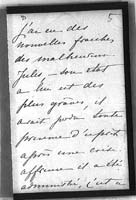 5
J'ai eu des
nouvelles fraîches
des malheureux
Jules, — son état
a lui est des
plus graves, il
avait perdu toute
présence d'esprit
après une crise
affreuse et a été
administré, c'est a